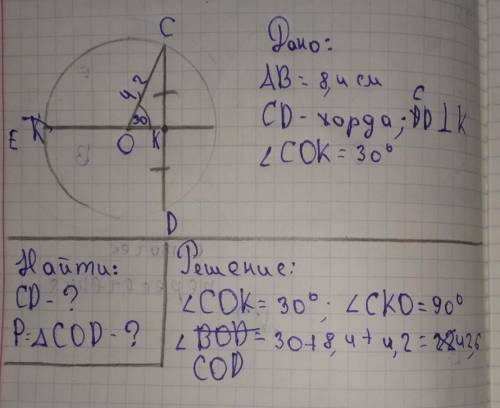 C
Дано:
4,2
AB = 8,4 см
CD - хорда; CD ⊥ K
∠COK = 30°
30
E
O
K
D
Найти:
CD - ?
P = △COD - ?
Решение:
∠COK = 30°; ∠CKO = 90°
∠ COD = 30+8,4+4,2 = 42,6